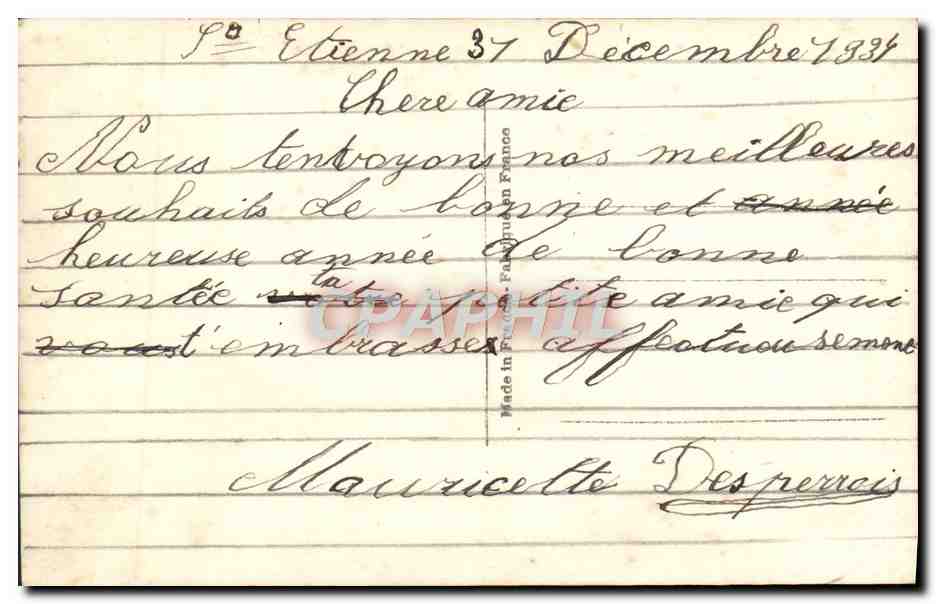 St Etienne 31 Décembre 1934
Chere amie
Nous tenvoyons nos meilleures
souhaits de bonne et année
heureuse année de bonne
santée votre ta petite amie qui
vous t'embrasse affectuousement
Mauricette Desperrois
Made in France - Fabriqué en France
CPAPHIL